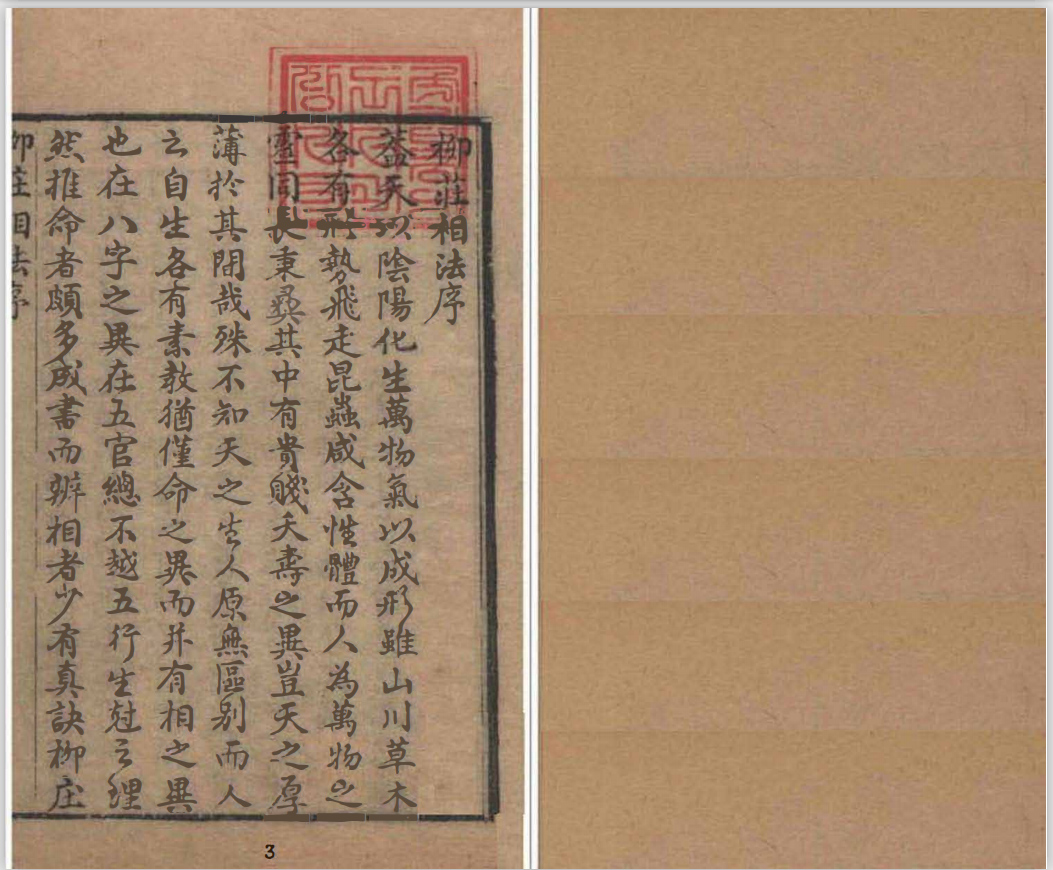 柳莊相法序
葢天以陰陽化生萬物氣以成形雖山川草木
各有形勢飛走昆蟲咸含性體而人為萬物之
靈同長秉彛其中有貴賤夭壽之異豈天之厚
薄扵其間哉殊不知天之生人原無區别而人
云自生各有素教猶僅命之異而并有相之異
也在八字之異在五官總不越五行生尅之理
然推命者頗多成書而辨相者少有真訣柳庄
柳庄相法序
3